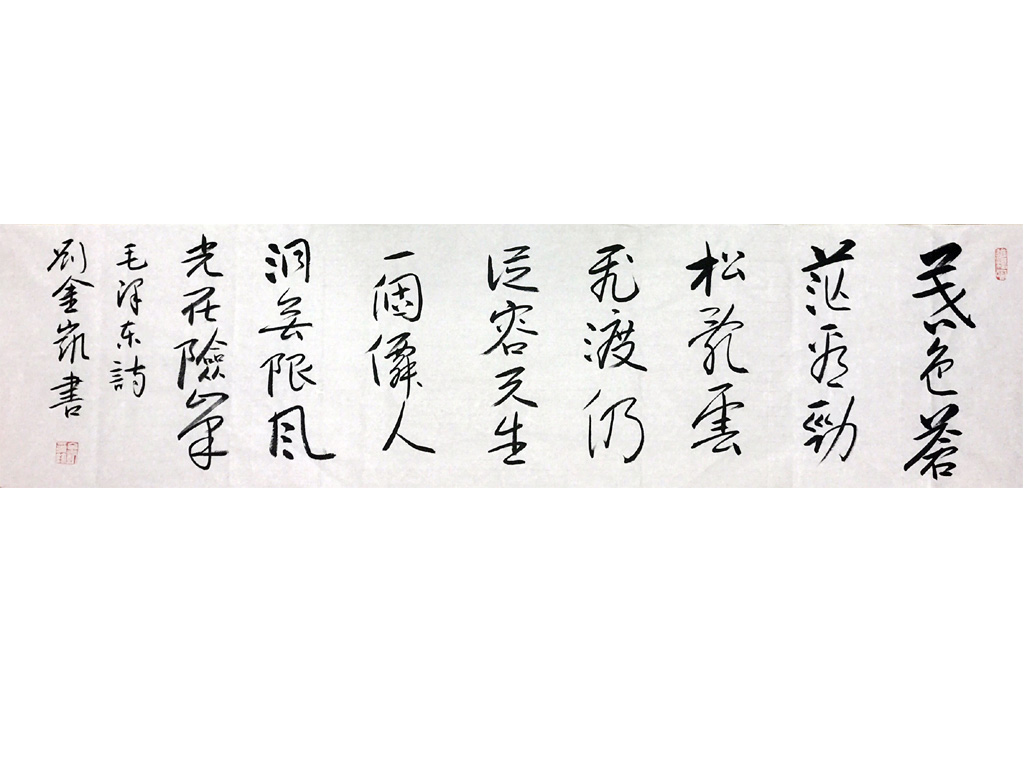 暮色蒼
茫看勁
松亂雲
飛渡仍
從容天生
一個僊人
洞無限風
光在險峯
毛澤东詩
劉金凱書